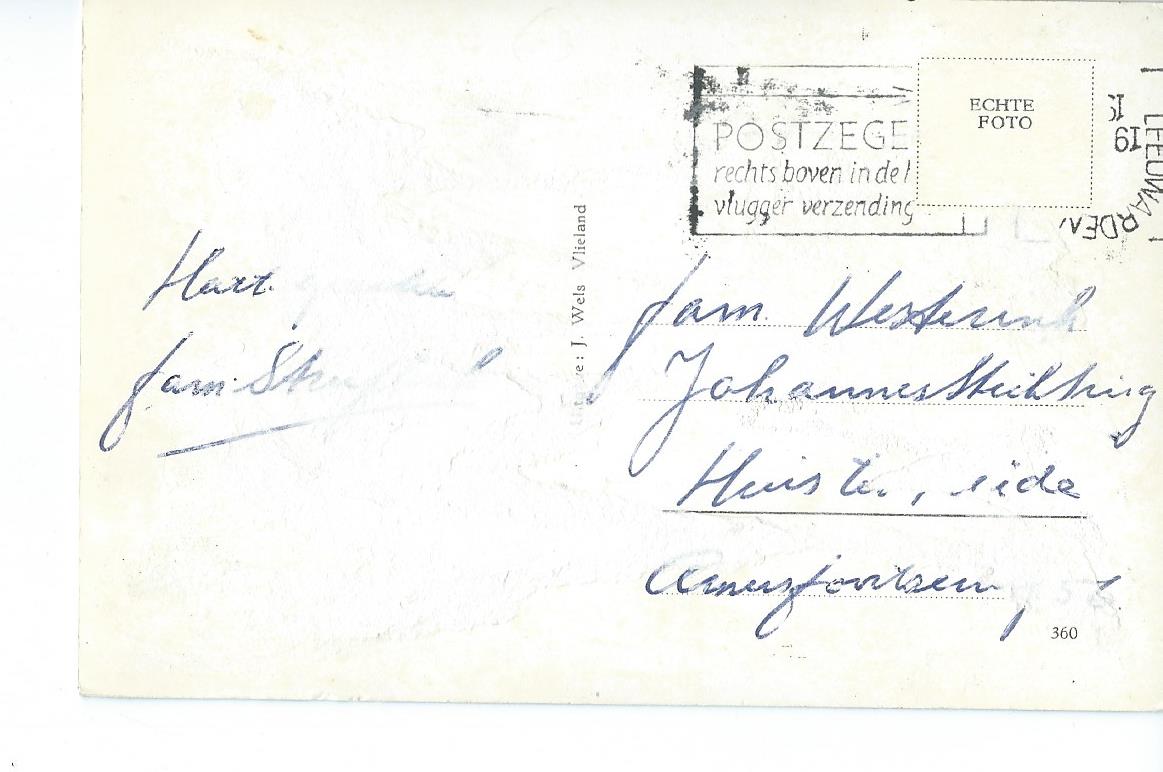 POSTZEGE
rechts boven in de h
vlugger verzending
ECHTE
FOTO
19
LEEUWARDEN
Hart.
fam.
ve: J. Wels Vlieland
fam. Westerink
Johannes Stichting
Huis ter eide
Amersfoortsew
360